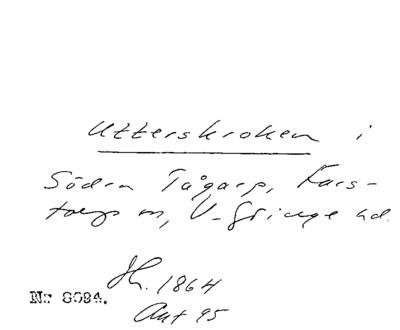 Utterskroken i
Södra Tågarp, Fars-
torps sn, V-Göinge hd.
Sk. 1864
Nr 8694.
Ant 95